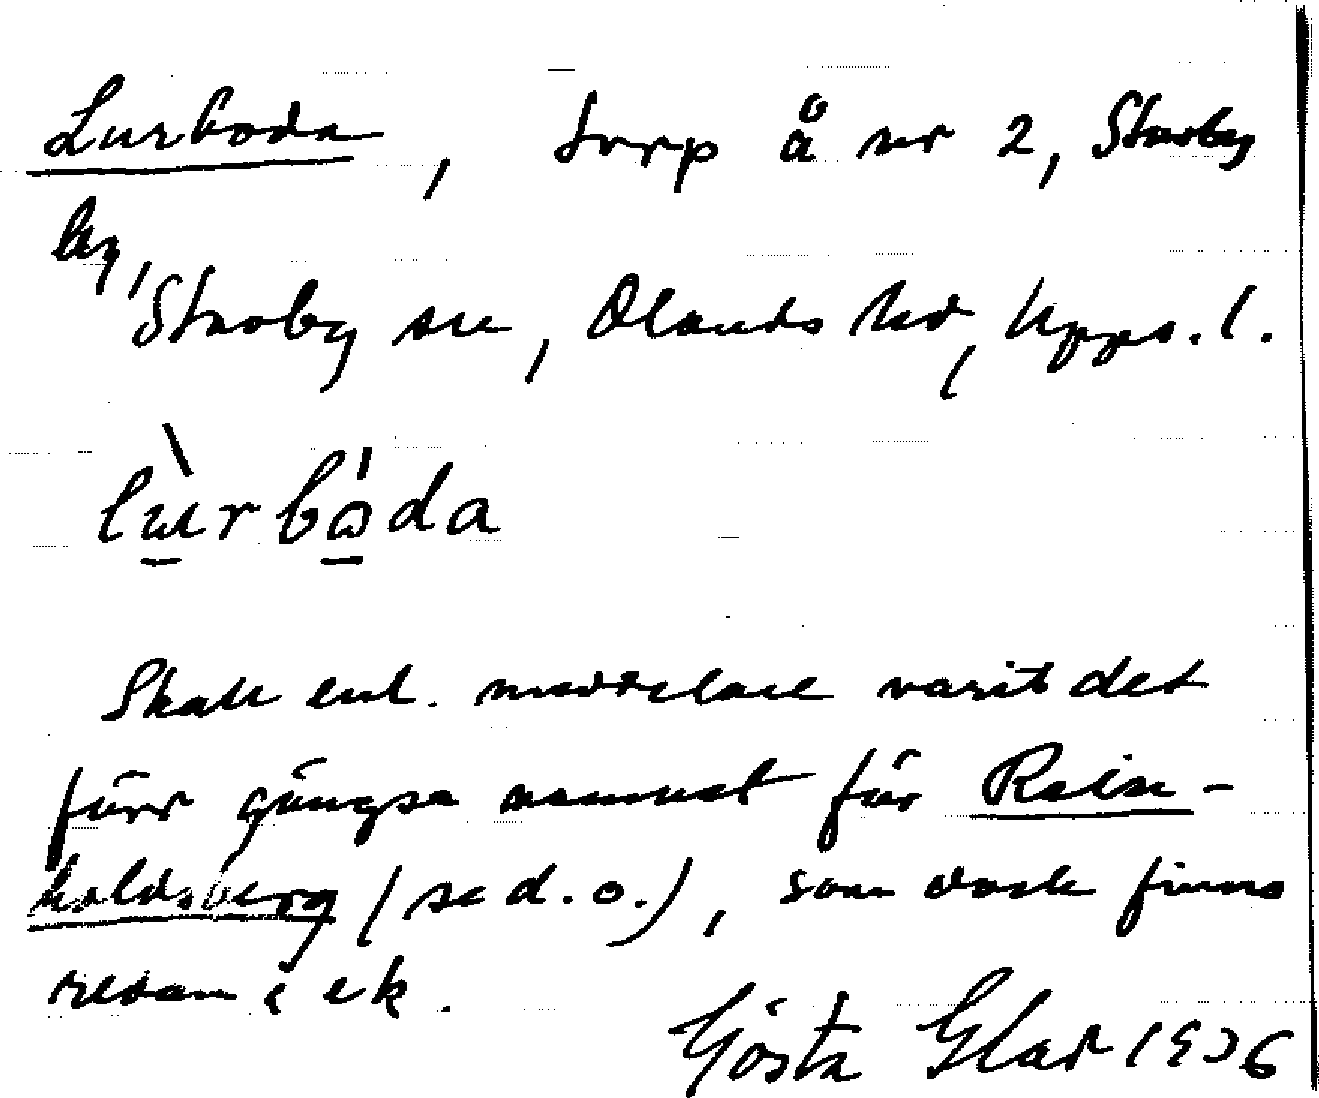 Lurboda, torp å nr 2, Starby
by,
Stavby sn, Olands hd, Upps. l.
lùrbòda
Skall enl. meddelare varit det
förr gängse namnet för Rein-
holdsberg (se d. o.), som dock finns
redan i ek.
Gösta Glad 1936